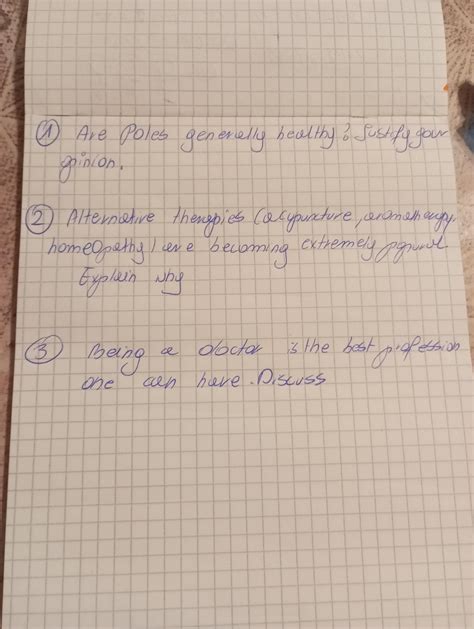 1 Are Poles generally healthy? Justify your
opinion.
2 Alternative therapies (acypuncture, aromatherapy,
homeopathy) are becoming extremely popular.
Explain why
3 Being a doctor is the best profession
one can have. Discuss